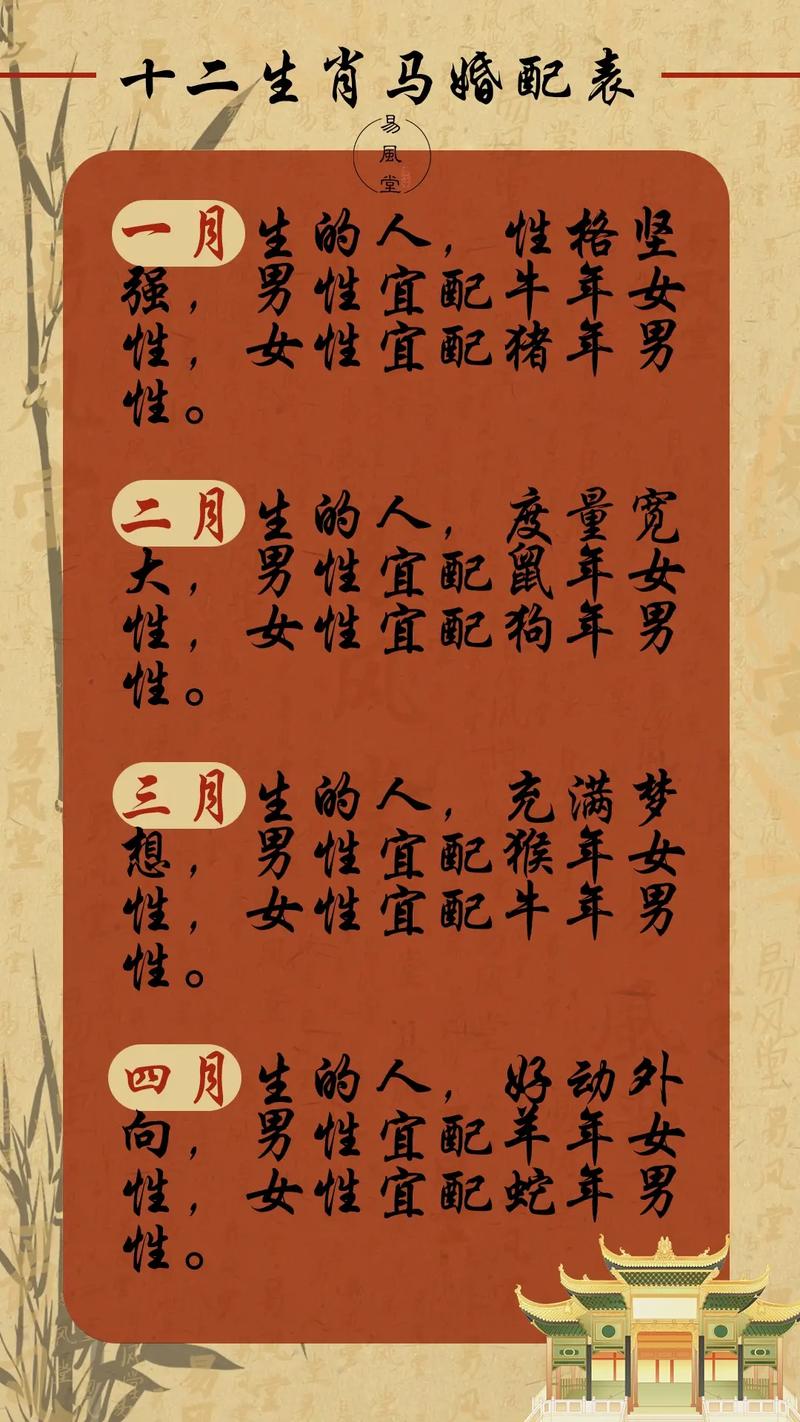 十二生肖马婚配表
易
風
堂
一月生的人，性格坚
强，男性宜配牛年女
性，女性宜配猪年男
性。
二月生的人，度量宽
大，男性宜配鼠年女
性，女性宜配狗年男
性。
三月生的人，充满梦
想，男性宜配猴年女
性，女性宜配牛年男
性。
四月生的人，好动外
向，男性宜配羊年女
性，女性宜配蛇年男
性。